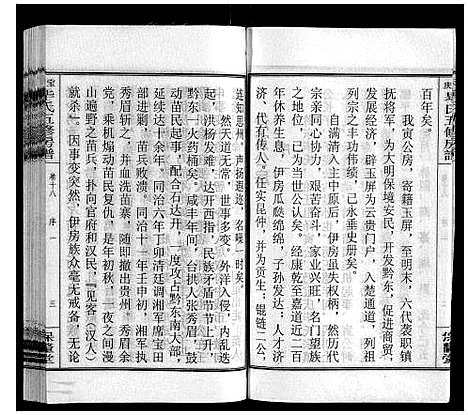 百年矣。
我寅公房，寄籍玉屏，至明末，六代袭职镇
抚将军，为大明保境安民，开发黔东，促进商贸，
发展经济，辟玉屏为云贵门户，入楚通道，列祖
列宗之丰功兵绩，已永垂史册矣。
自满清入主中原后，伊房虽失权柄，然历代
宗亲同心协力，艰苦奋斗，家业兴旺，名门望族
之地位，已为当世世人公认。经康乾至嘉道近二百
年休养生息，伊房瓜瓞绵绵，子孙发达；人才济
济，代有传人。任实昆仲，并为贡生；锟链二公，
誉知思州，声扬遐迩，名噪一时矣。
然天道无常，世事多变。外洋入侵，内乱迭
起，洪杨发难，达开西指，民族矛盾节节上升，
黔东一火药桶矣。咸丰年间，台拱人张秀眉，鼓
动苗民起事，配合石达开，一度攻占黔东南大部，
延续达十余年。同治六年丁卯清廷调湘军席宝田
部进剿，苗兵败溃。同治十一年壬申初，湘军执
秀眉斩之，剿部残苗，随即撤出贵州，秀眉余
党，乘机煽动苗民复仇。是年一秋，一夜之间漫
山遍野之苗兵，扑向官府和汉民，『见客（汉人）
就杀』。因事变突然，伊房族众毫无戒备，无论
氏五修房谱
卷十八
序一
三